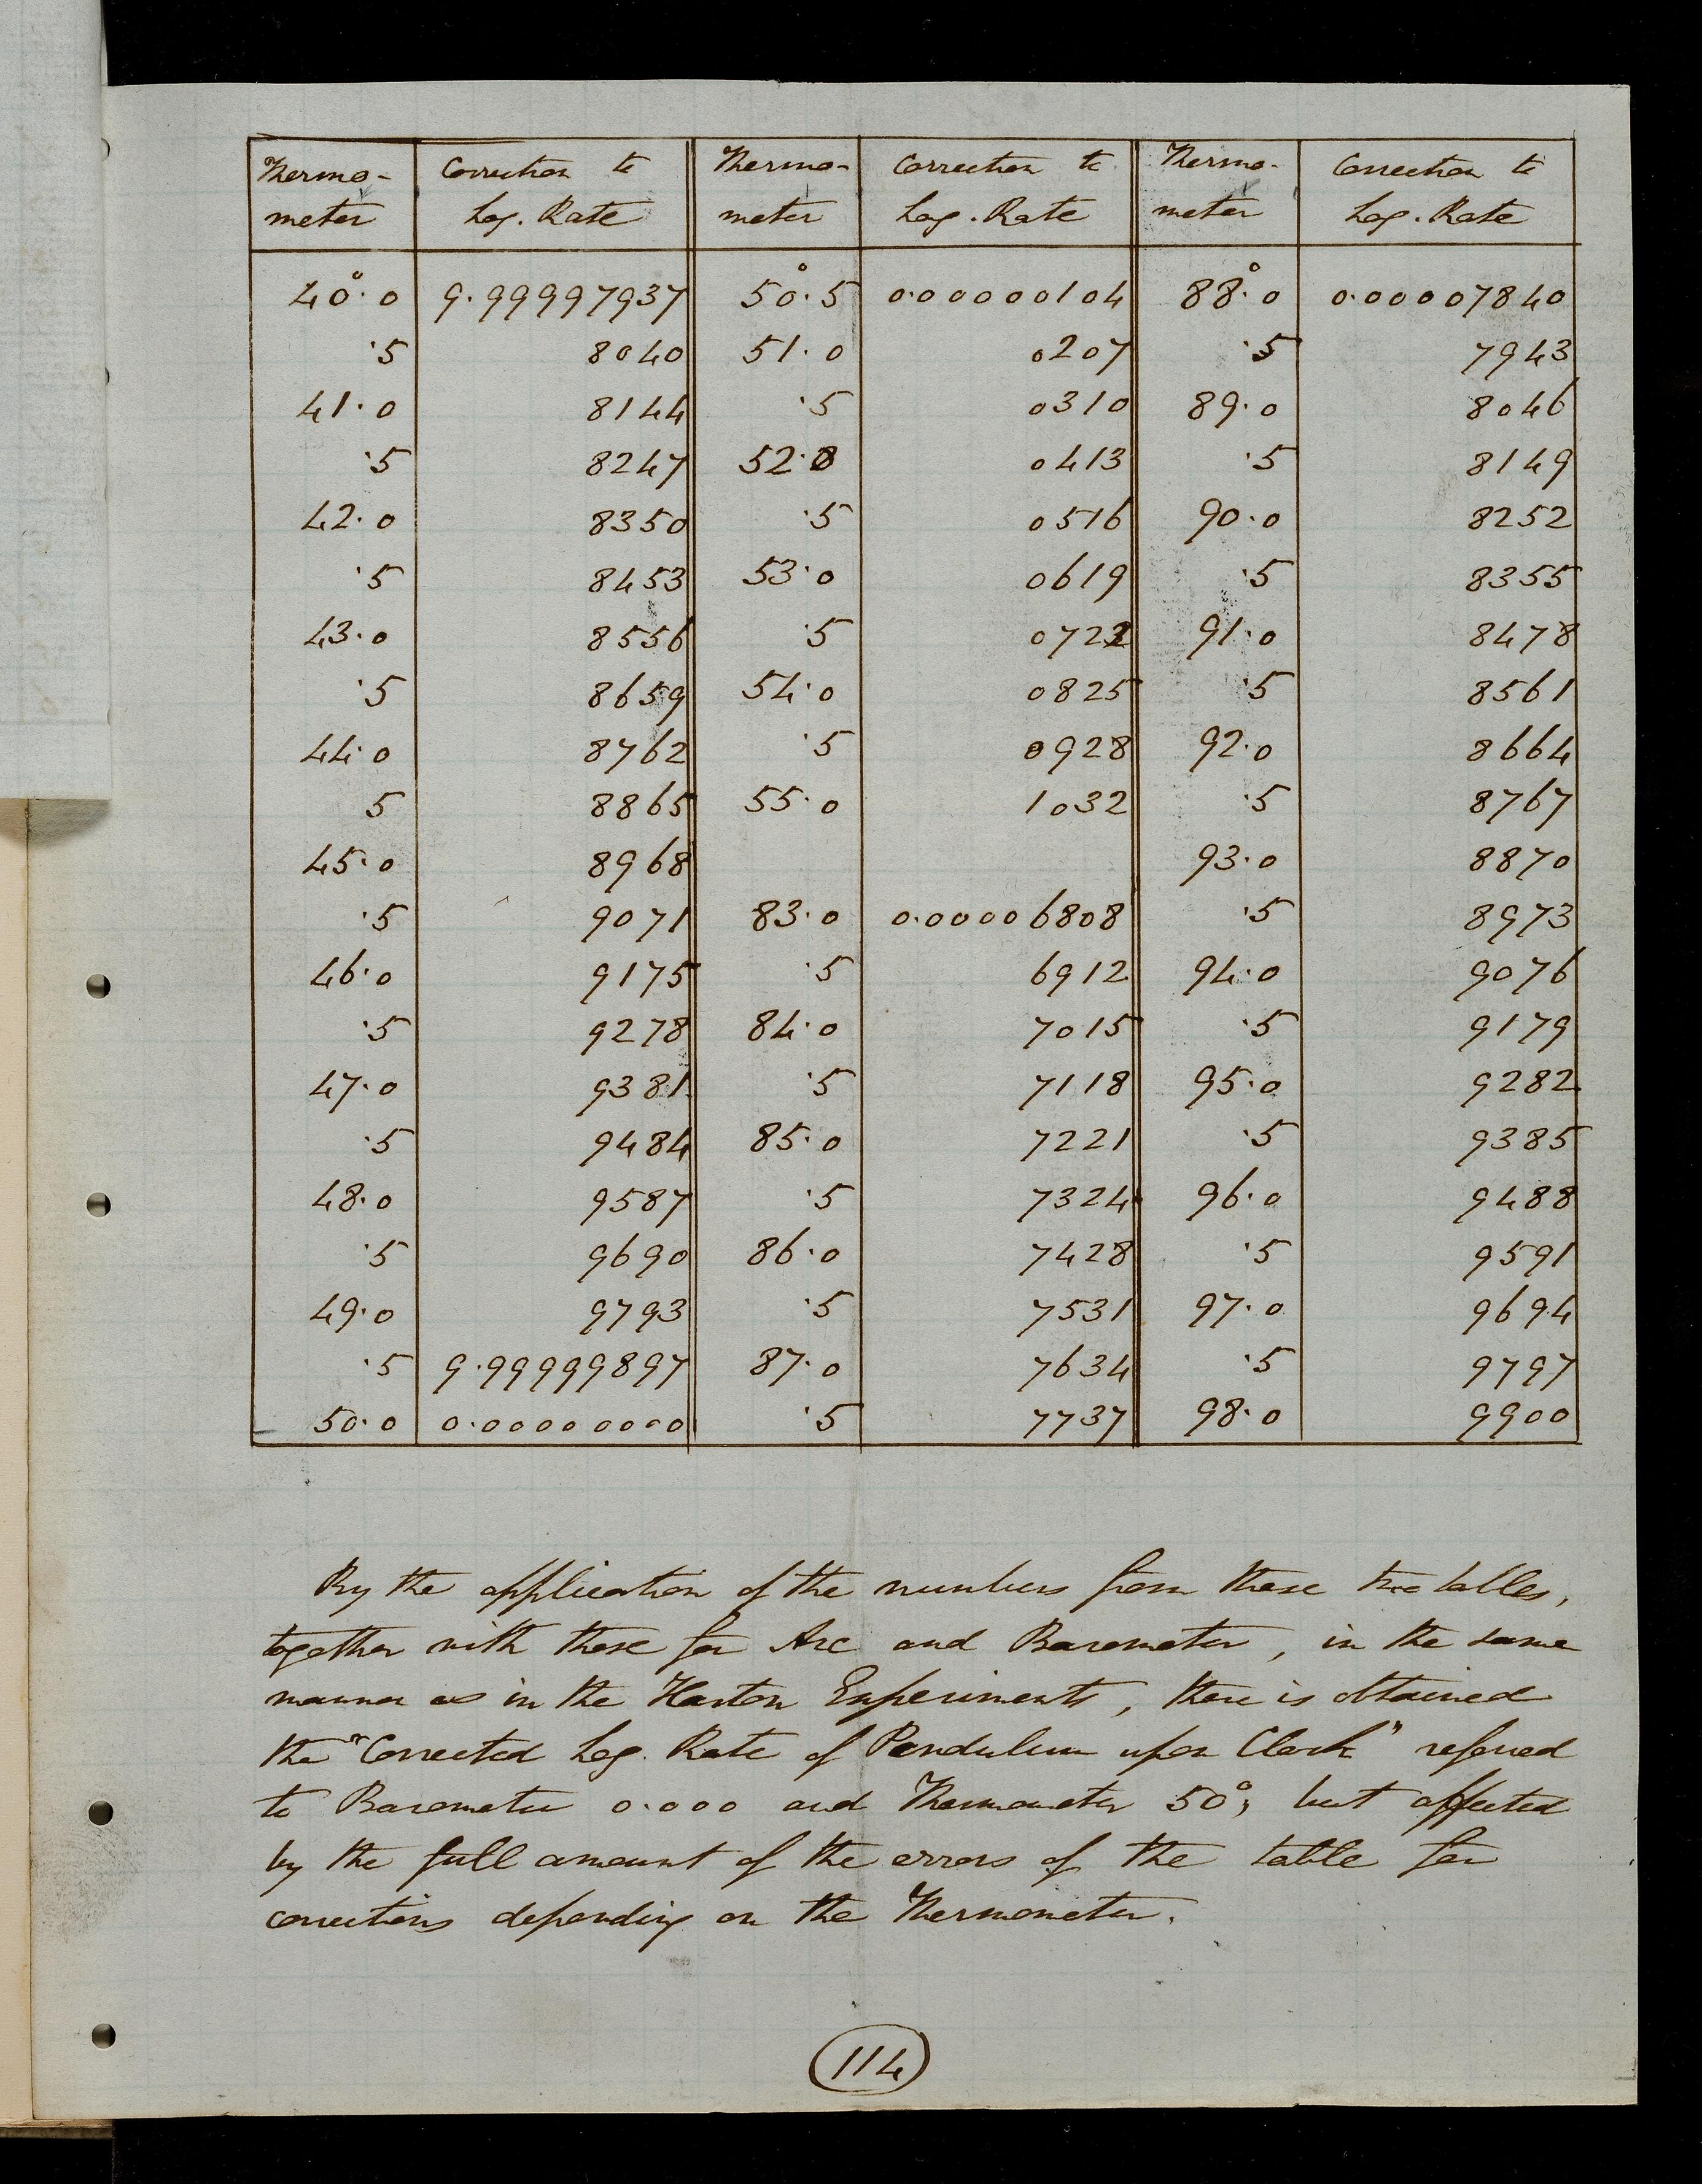 Thermo- Correction to Thermo- Correction to Thermo- Correction to
meter Log. Rate meter Log. Rate meter Log. Rate
40°.0 9.99997937 50°.5 0.00000104 88°.0 0.00007840
.5 8040 51.0 0207 .5 7943
41.0 8144 .5 0310 89.0 8046
.5 8247 52.0 0413 .5 8149
42.0 8350 .5 0516 90.0 8252
.5 8453 53.0 0619 .5 8355
43.0 8556 .5 0722 91.0 8478
.5 8659 54.0 0825 .5 8561
44.0 8762 .5 0928 92.0 8664
5 8865 55.0 1032 .5 8767
45.0 8968 93.0 8870
.5 9071 83.0 0.00006808 .5 8973
46.0 9175 .5 6912 94.0 9076
.5 9278 84.0 7015 .5 9179
47.0 9381 .5 7118 95.0 9282
.5 9484 85.0 7221 .5 9385
48.0 9587 .5 7324 96.0 9488
.5 9690 86.0 7428 .5 9591
49.0 9793 .5 7531 97.0 9694
.5 9.99999897 87.0 7634 .5 9797
50.0 0.00000000 .5 7737 98.0 9900
By the application of the numbers from these two tables,
together with those for Arc and Barometer, in the same
manner as in the Harton Experiments, there is obtained
the "Corrected Log. Rate of Pendulum upon Clock" referred
to Barometer 0.000 and Thermometer 50°, but affected
by the full amount of the errors of the table for
corrections depending on the Thermometer.
114